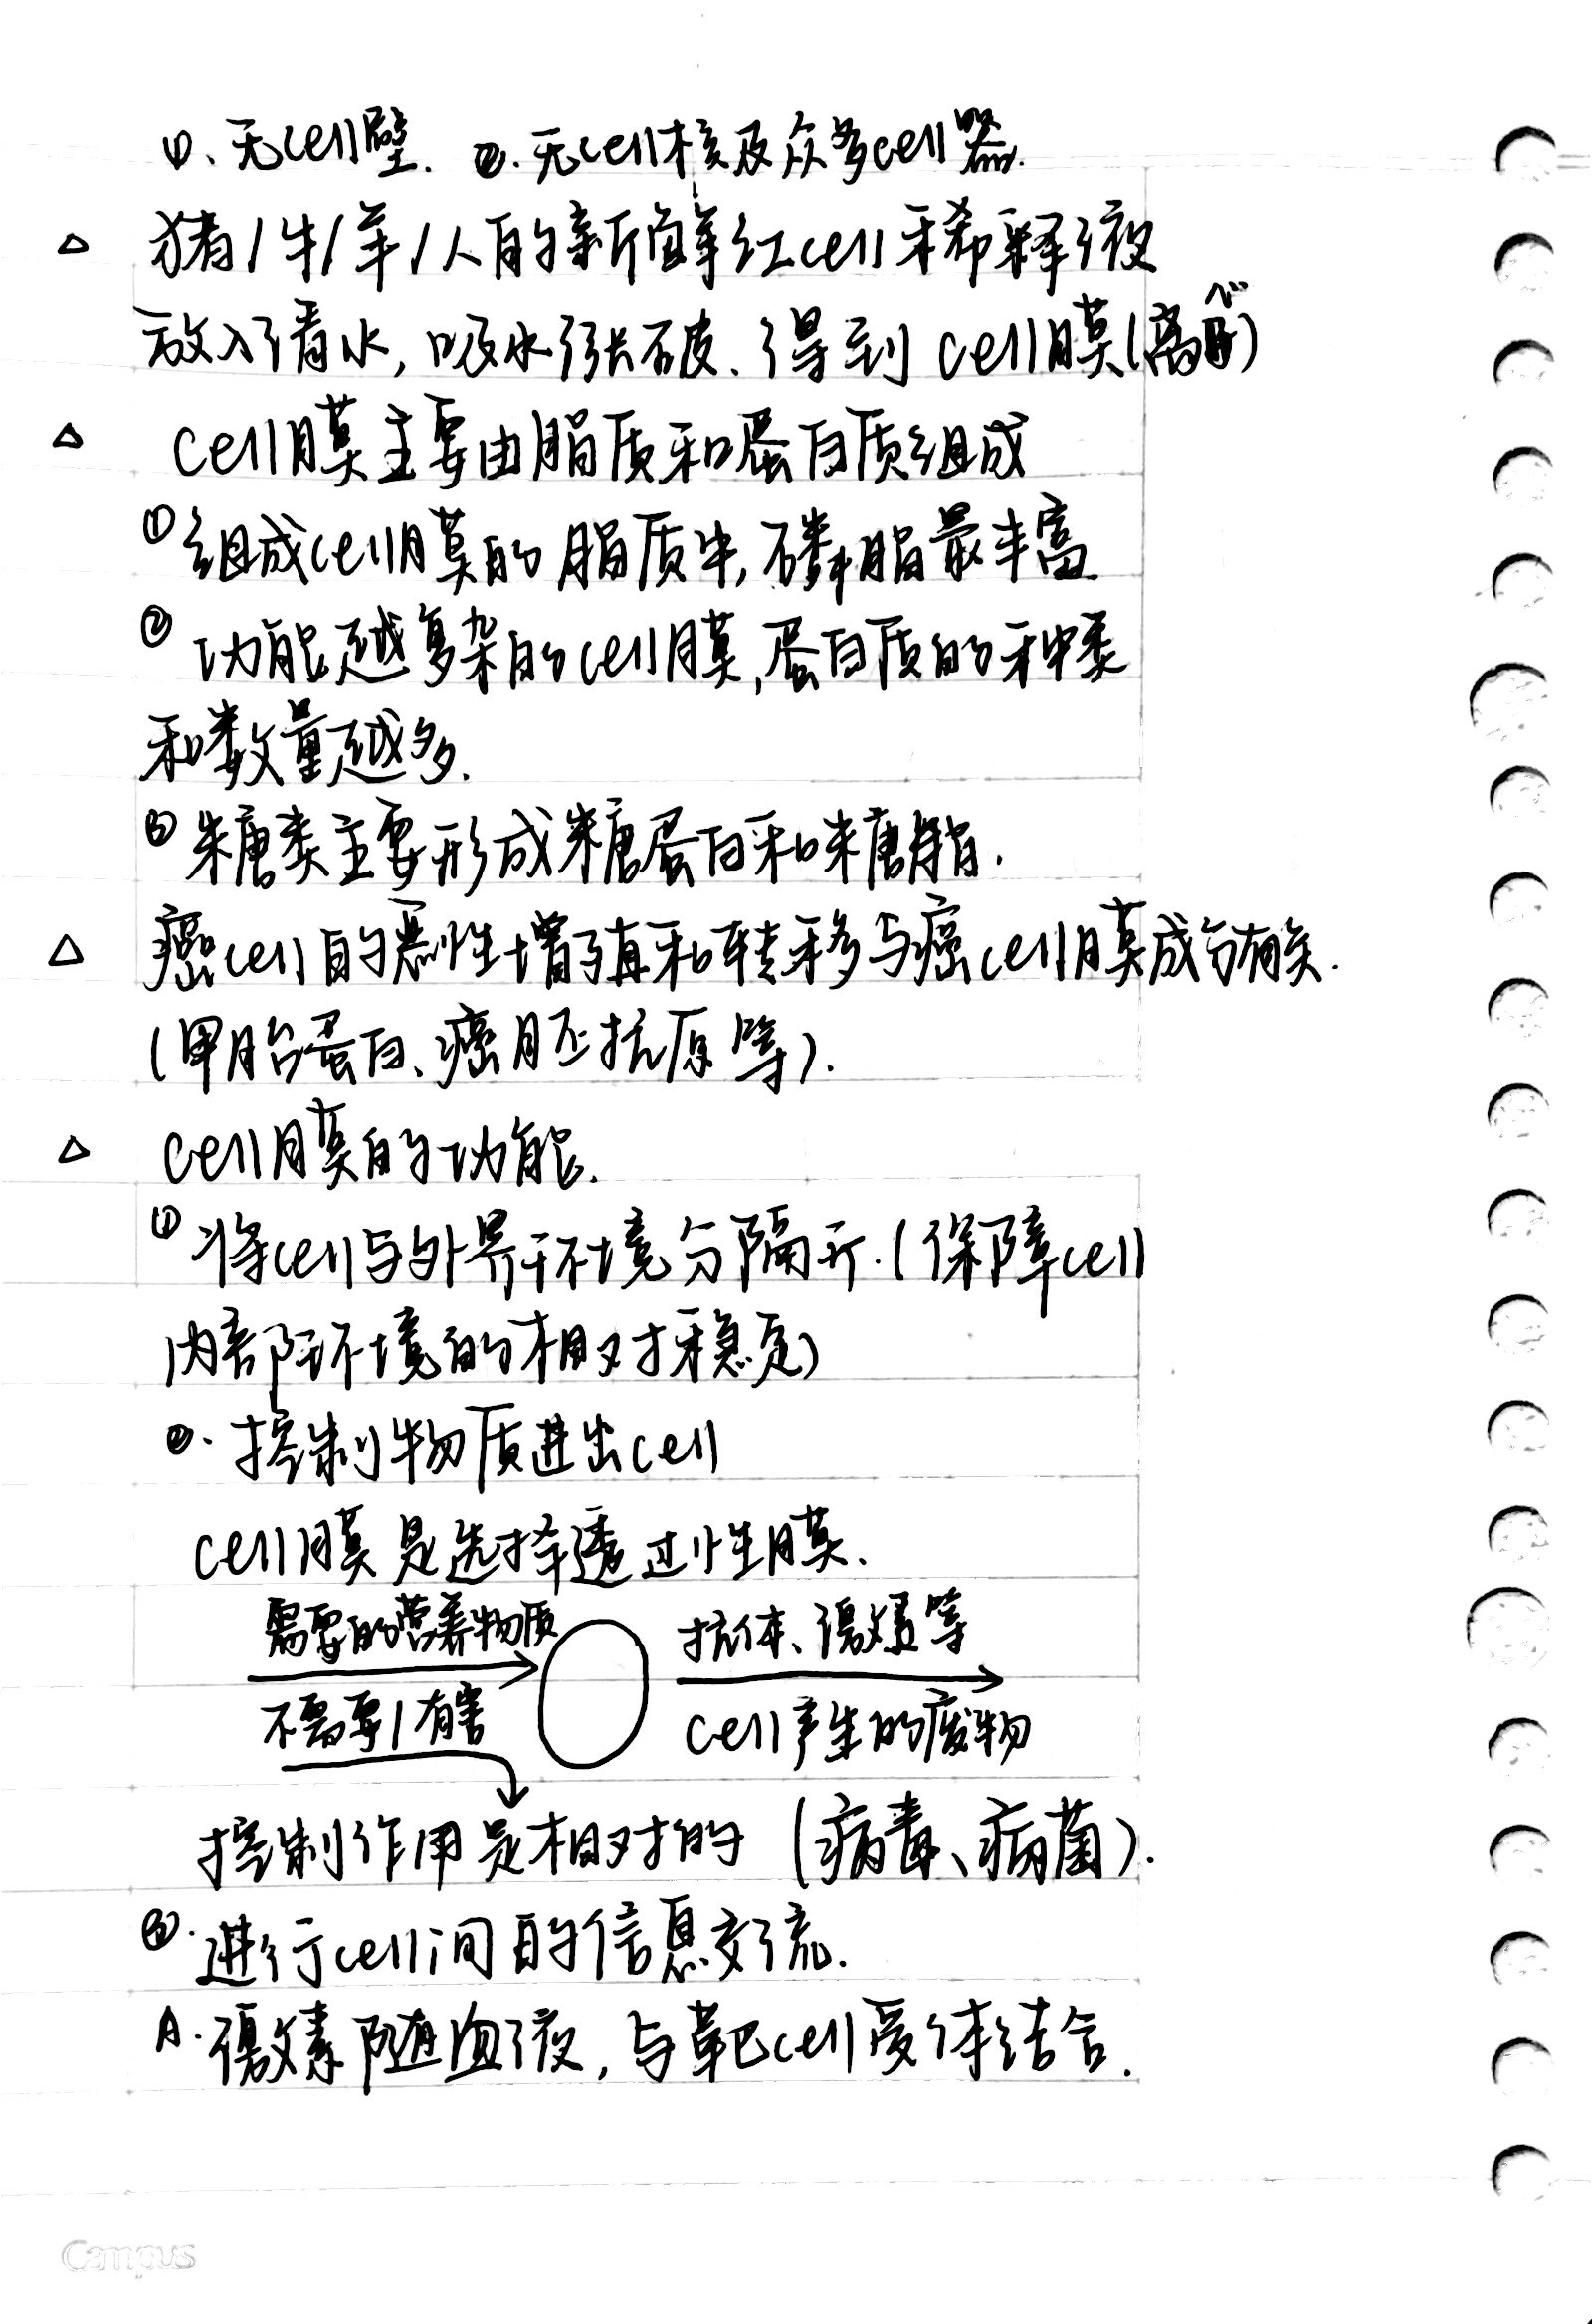 ①、无cell壁. ②.无cell核及众多cell器.
△ 猪/牛/羊/人的新鲜红cell稀释液
放入清水, 吸水涨破、得到cell膜(离心)
△ cell膜主要由脂质和蛋白质组成
①组成cell膜的脂质中,磷脂最丰富
② 功能越复杂的cell膜,蛋白质的种类
和数量越多.
③ 糖类主要形成糖蛋白和糖脂.
△ 癌cell的恶性增殖和转移与癌cell膜成分有关.
(甲胎蛋白、癌胚抗原等).
△ cell膜的功能.
① 将cell与外界环境分隔开.(保障cell
内部环境的相对稳定)
②. 控制物质进出cell
cell膜是选择透过性膜.
需要的营养物质 抗体、激素等
不需要/有害 cell产生的废物
控制作用是相对的 (病毒、病菌).
③.进行cell间的信息交流.
A.激素随血液, 与靶cell受体结合.
Campus